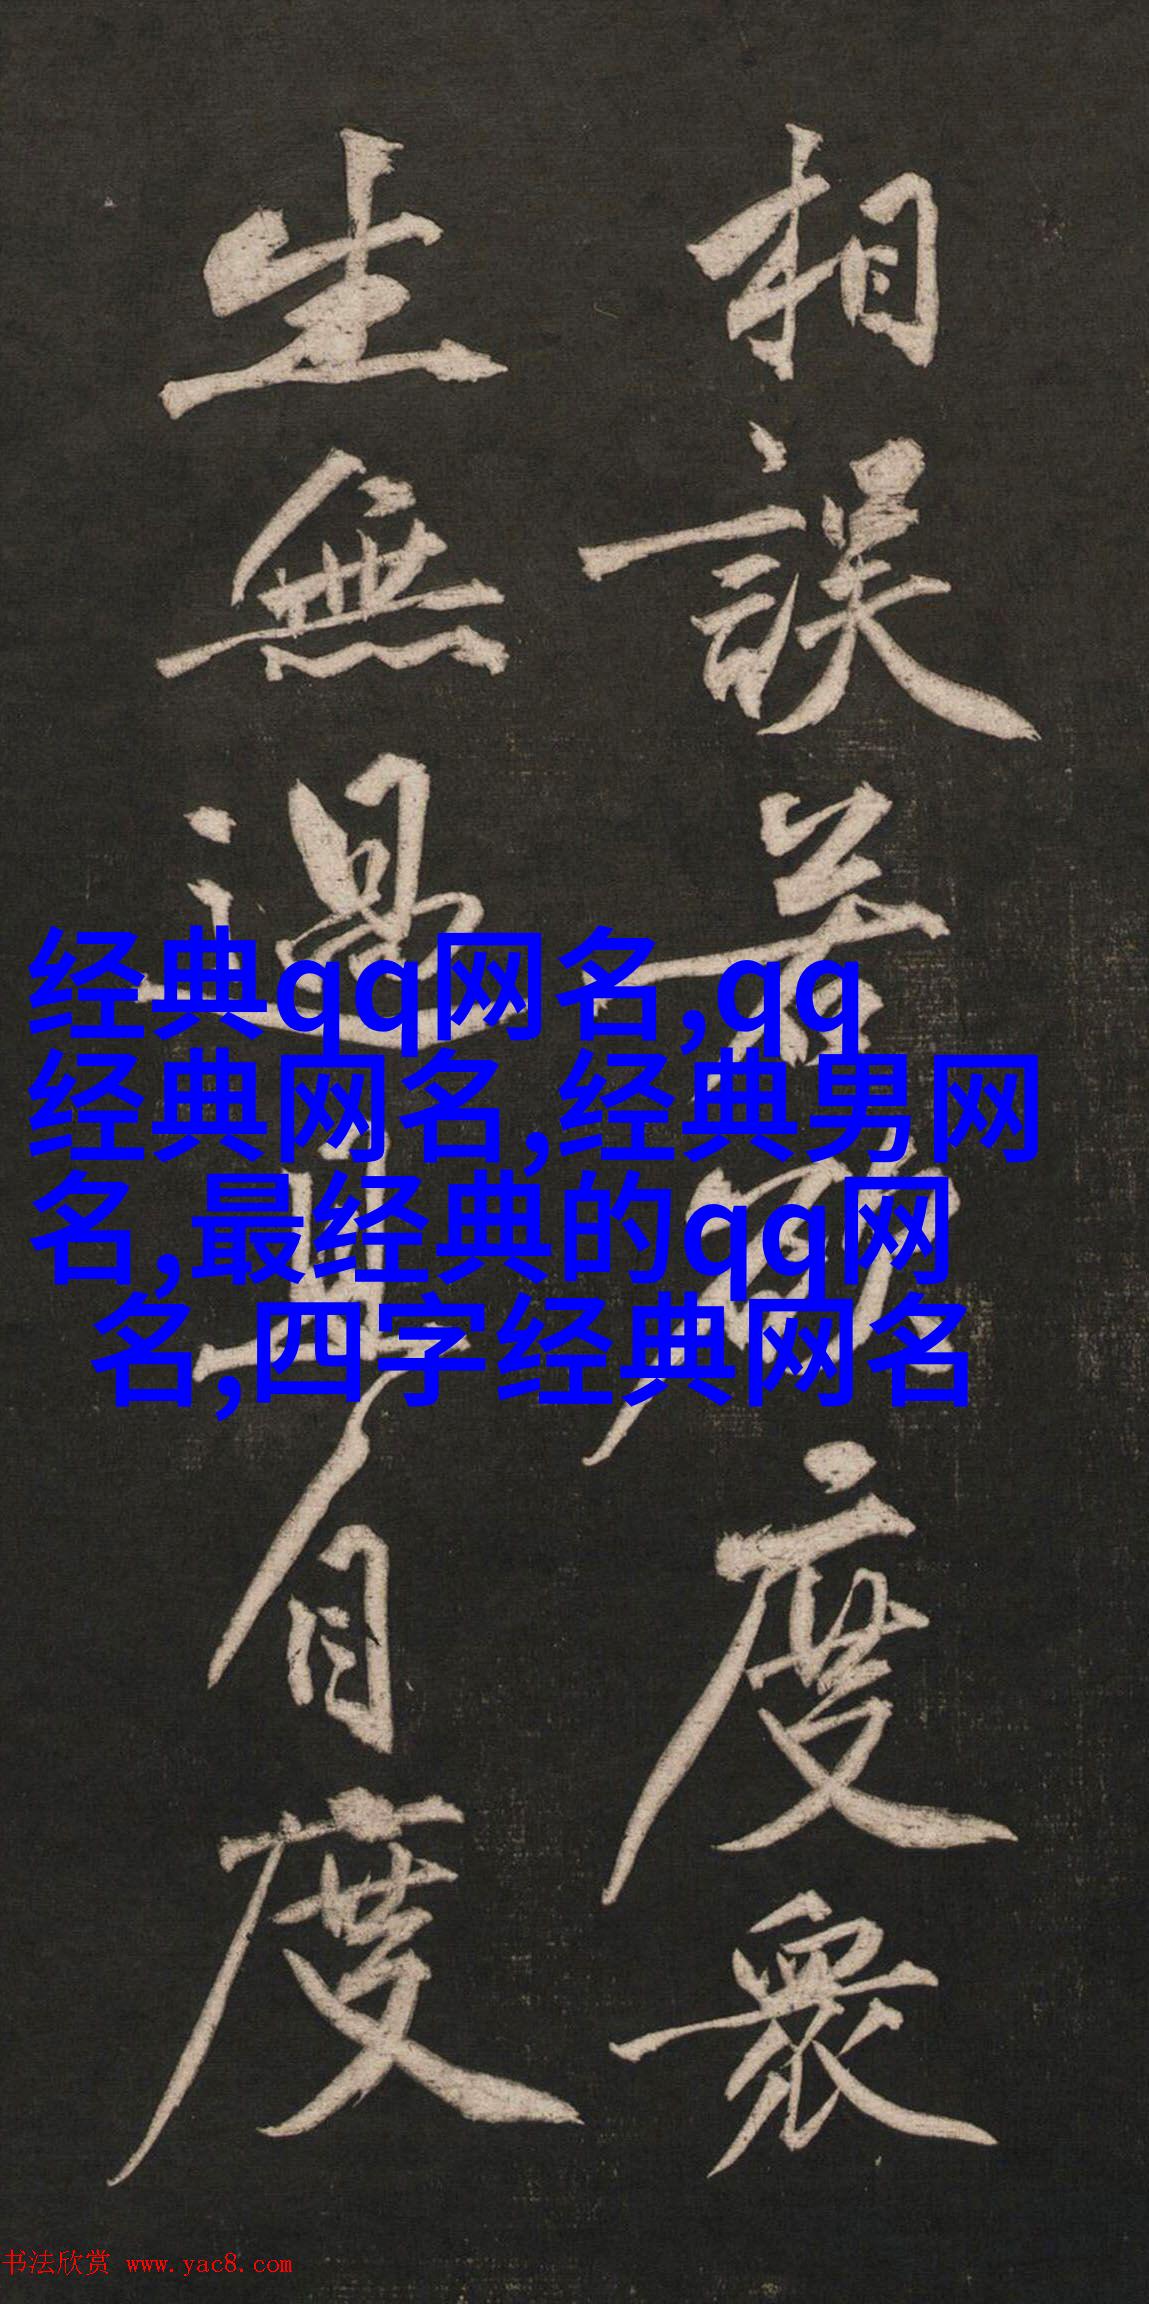 相誤若度衆
生無過且自度
经典qq网名,qq
经典网名,经典男网
名,最经典的qq网
名,四字经典网名
书法欣赏 www.yac8.com